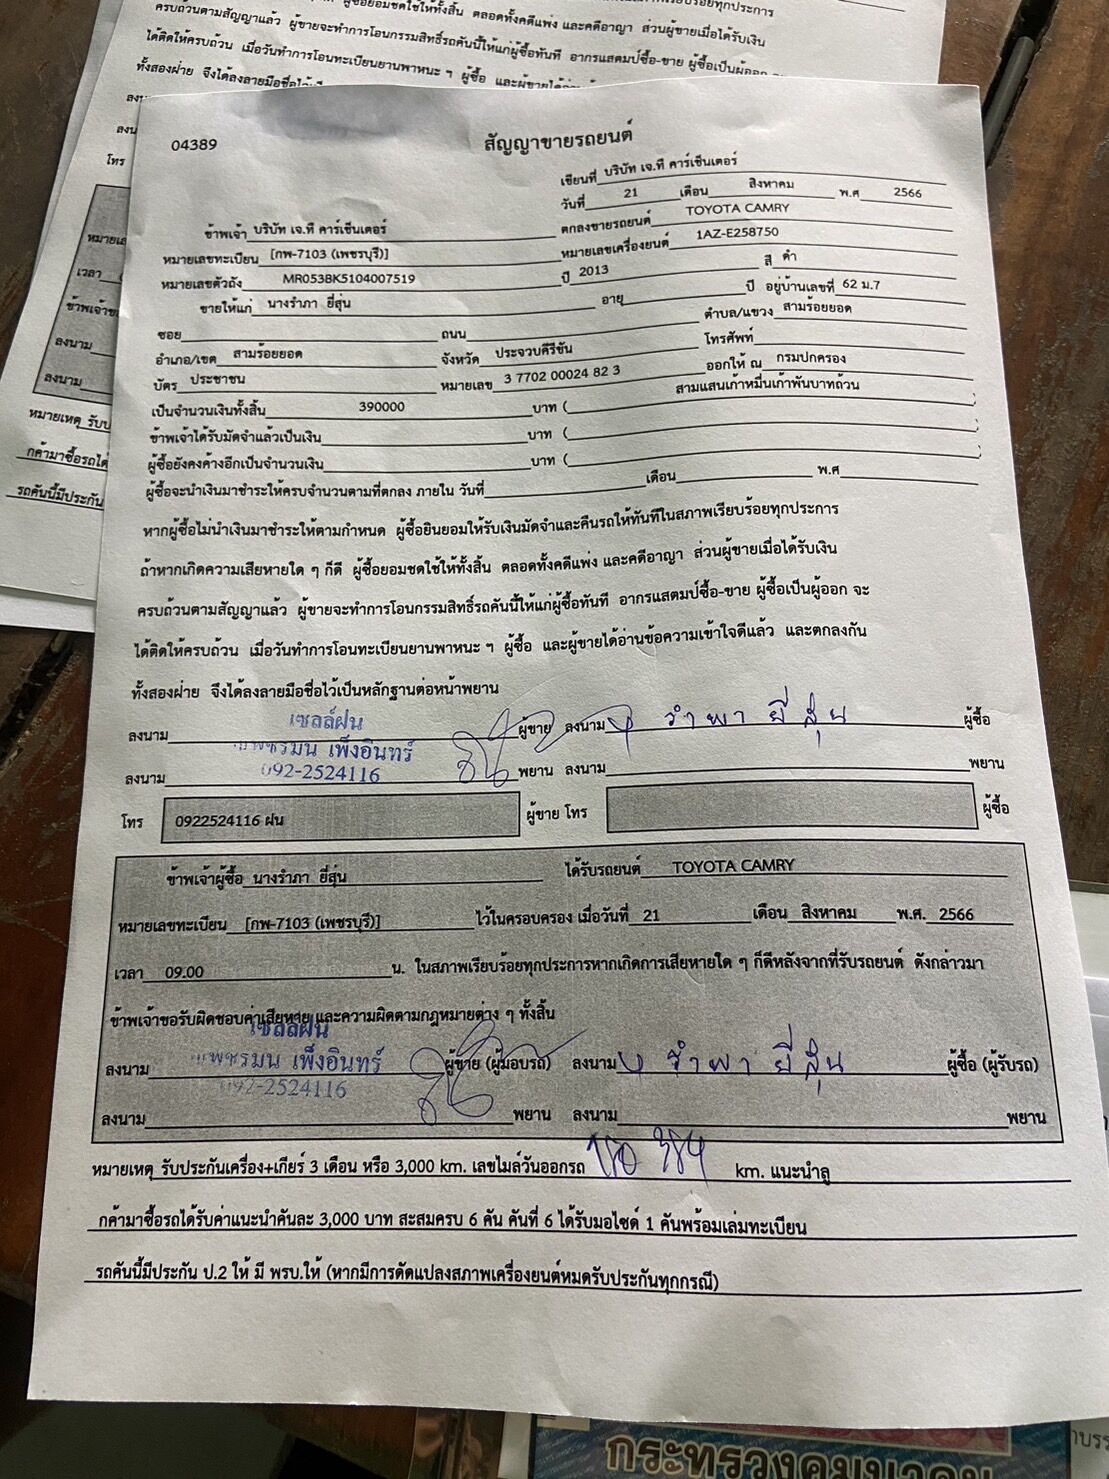 ครบถ้วนตามสัญญาแล้ว ผู้ขายจะทำการโอนกรรมสิทธิ์รถคันนี้ให้แก่ผู้ซื้อทันที อากรแสตมป์ซื้อ-ขาย ผู้ซื้อเป็นผู้ออก
ได้ติดให้ครบถ้วน เมื่อวันทำการโอนทะเบียนยานพาหนะ ฯ ผู้ซื้อ
ทั้งสองฝ่าย จึงได้ลงลายมือชื่อไว้
โทร
เวลา
ลงนาม
ลงนาม
หมายเหตุ
กค้ามาซื้อรถได้
รถคันนี้มีประกัน
04389
สัญญาขายรถยนต์
เขียนที่ บริษัท เจ.ที คาร์เซ็นเตอร์
วันที่ 21 เดือน สิงหาคม พ.ศ 2566
ข้าพเจ้า บริษัท เจ.ที คาร์เซ็นเตอร์ ตกลงขายรถยนต์ TOYOTA CAMRY
หมายเลขทะเบียน [กพ-7103 (เพชรบุรี)] หมายเลขเครื่องยนต์ 1AZ-E258750
หมายเลขตัวถัง MR053BK5104007519 ปี 2013 สี ดำ
ขายให้แก่ นางรำภา ยี่สุ่น อายุ ปี อยู่บ้านเลขที่ 62 ม.7
ซอย ถนน ตำบล/แขวง สามร้อยยอด
อำเภอ/เขต สามร้อยยอด จังหวัด ประจวบคีรีขัน โทรศัพท์
บัตร ประชาชน หมายเลข 3 7702 00024 82 3 ออกให้ ณ กรมปกครอง
เป็นจำนวนเงินทั้งสิ้น 390000 บาท ( สามแสนเก้าหมื่นเก้าพันบาทถ้วน )
ข้าพเจ้าได้รับมัดจำแล้วเป็นเงิน บาท ( )
ผู้ซื้อยังคงค้างอีกเป็นจำนวนเงิน บาท ( )
ผู้ซื้อจะนำเงินมาชำระให้ครบจำนวนตามที่ตกลง ภายใน วันที่ เดือน พ.ศ
หากผู้ซื้อไม่นำเงินมาชำระให้ตามกำหนด ผู้ซื้อยินยอมให้รับเงินมัดจำและคืนรถให้ทันทีในสภาพเรียบร้อยทุกประการ
ถ้าหากเกิดความเสียหายใด ๆ ก็ดี ผู้ซื้อยอมชดใช้ให้ทั้งสิ้น ตลอดทั้งคดีแพ่ง และคดีอาญา ส่วนผู้ขายเมื่อได้รับเงิน
ครบถ้วนตามสัญญาแล้ว ผู้ขายจะทำการโอนกรรมสิทธิ์รถคันนี้ให้แก่ผู้ซื้อทันที อากรแสตมป์ซื้อ-ขาย ผู้ซื้อเป็นผู้ออก จะ
ได้ติดให้ครบถ้วน เมื่อวันทำการโอนทะเบียนยานพาหนะ ฯ ผู้ซื้อ และผู้ขายได้อ่านข้อความเข้าใจดีแล้ว และตกลงกัน
ทั้งสองฝ่าย จึงได้ลงลายมือชื่อไว้เป็นหลักฐานต่อหน้าพยาน
เซลล์ฝน
ลงนาม ผู้ขาย ลงนาม รำพา ยี่สุ่น ผู้ซื้อ
เพ็งอินทร์
ลงนาม 092-2524116 พยาน ลงนาม พยาน
โทร 0922524116 ฝน ผู้ขาย โทร ผู้ซื้อ
ข้าพเจ้าผู้ซื้อ นางรำภา ยี่สุ่น ได้รับรถยนต์ TOYOTA CAMRY
หมายเลขทะเบียน [กพ-7103 (เพชรบุรี)] ไว้ในครอบครอง เมื่อวันที่ 21 เดือน สิงหาคม พ.ศ. 2566
เวลา 09.00 น. ในสภาพเรียบร้อยทุกประการหากเกิดการเสียหายใด ๆ ก็ดีหลังจากที่รับรถยนต์ ดังกล่าวมา
ข้าพเจ้าขอรับผิดชอบค่าเสียหาย และความผิดตามกฎหมายต่าง ๆ ทั้งสิ้น
เซลล์ฝน
ลงนาม เพ็งอินทร์ ผู้ขาย (ผู้มอบรถ) ลงนาม รำพา ยี่สุ่น ผู้ซื้อ (ผู้รับรถ)
092-2524116
ลงนาม พยาน ลงนาม พยาน
หมายเหตุ รับประกันเครื่อง+เกียร์ 3 เดือน หรือ 3,000 km. เลขไมล์วันออกรถ km. แนะนำลู
กค้ามาซื้อรถได้รับค่าแนะนำคันละ 3,000 บาท สะสมครบ 6 คัน คันที่ 6 ได้รับมอไซด์ 1 คันพร้อมเล่มทะเบียน
รถคันนี้มีประกัน ป.2 ให้ มี พรบ.ให้ (หากมีการดัดแปลงสภาพเครื่องยนต์หมดรับประกันทุกกรณี)
กระทรวงคมนาคม